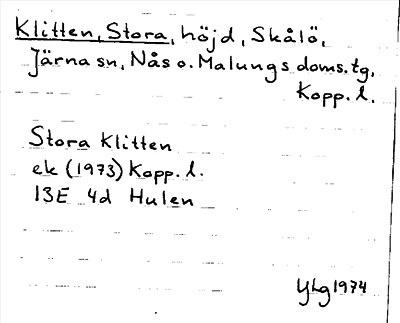 Klitten, Stora, höjd, Skålö,
Järna sn, Nås o. Malungs doms. tg,
Kopp. l.
Stora Klitten
ek (1973) Kopp. l.
13E 4d Hulen
YLg 1974